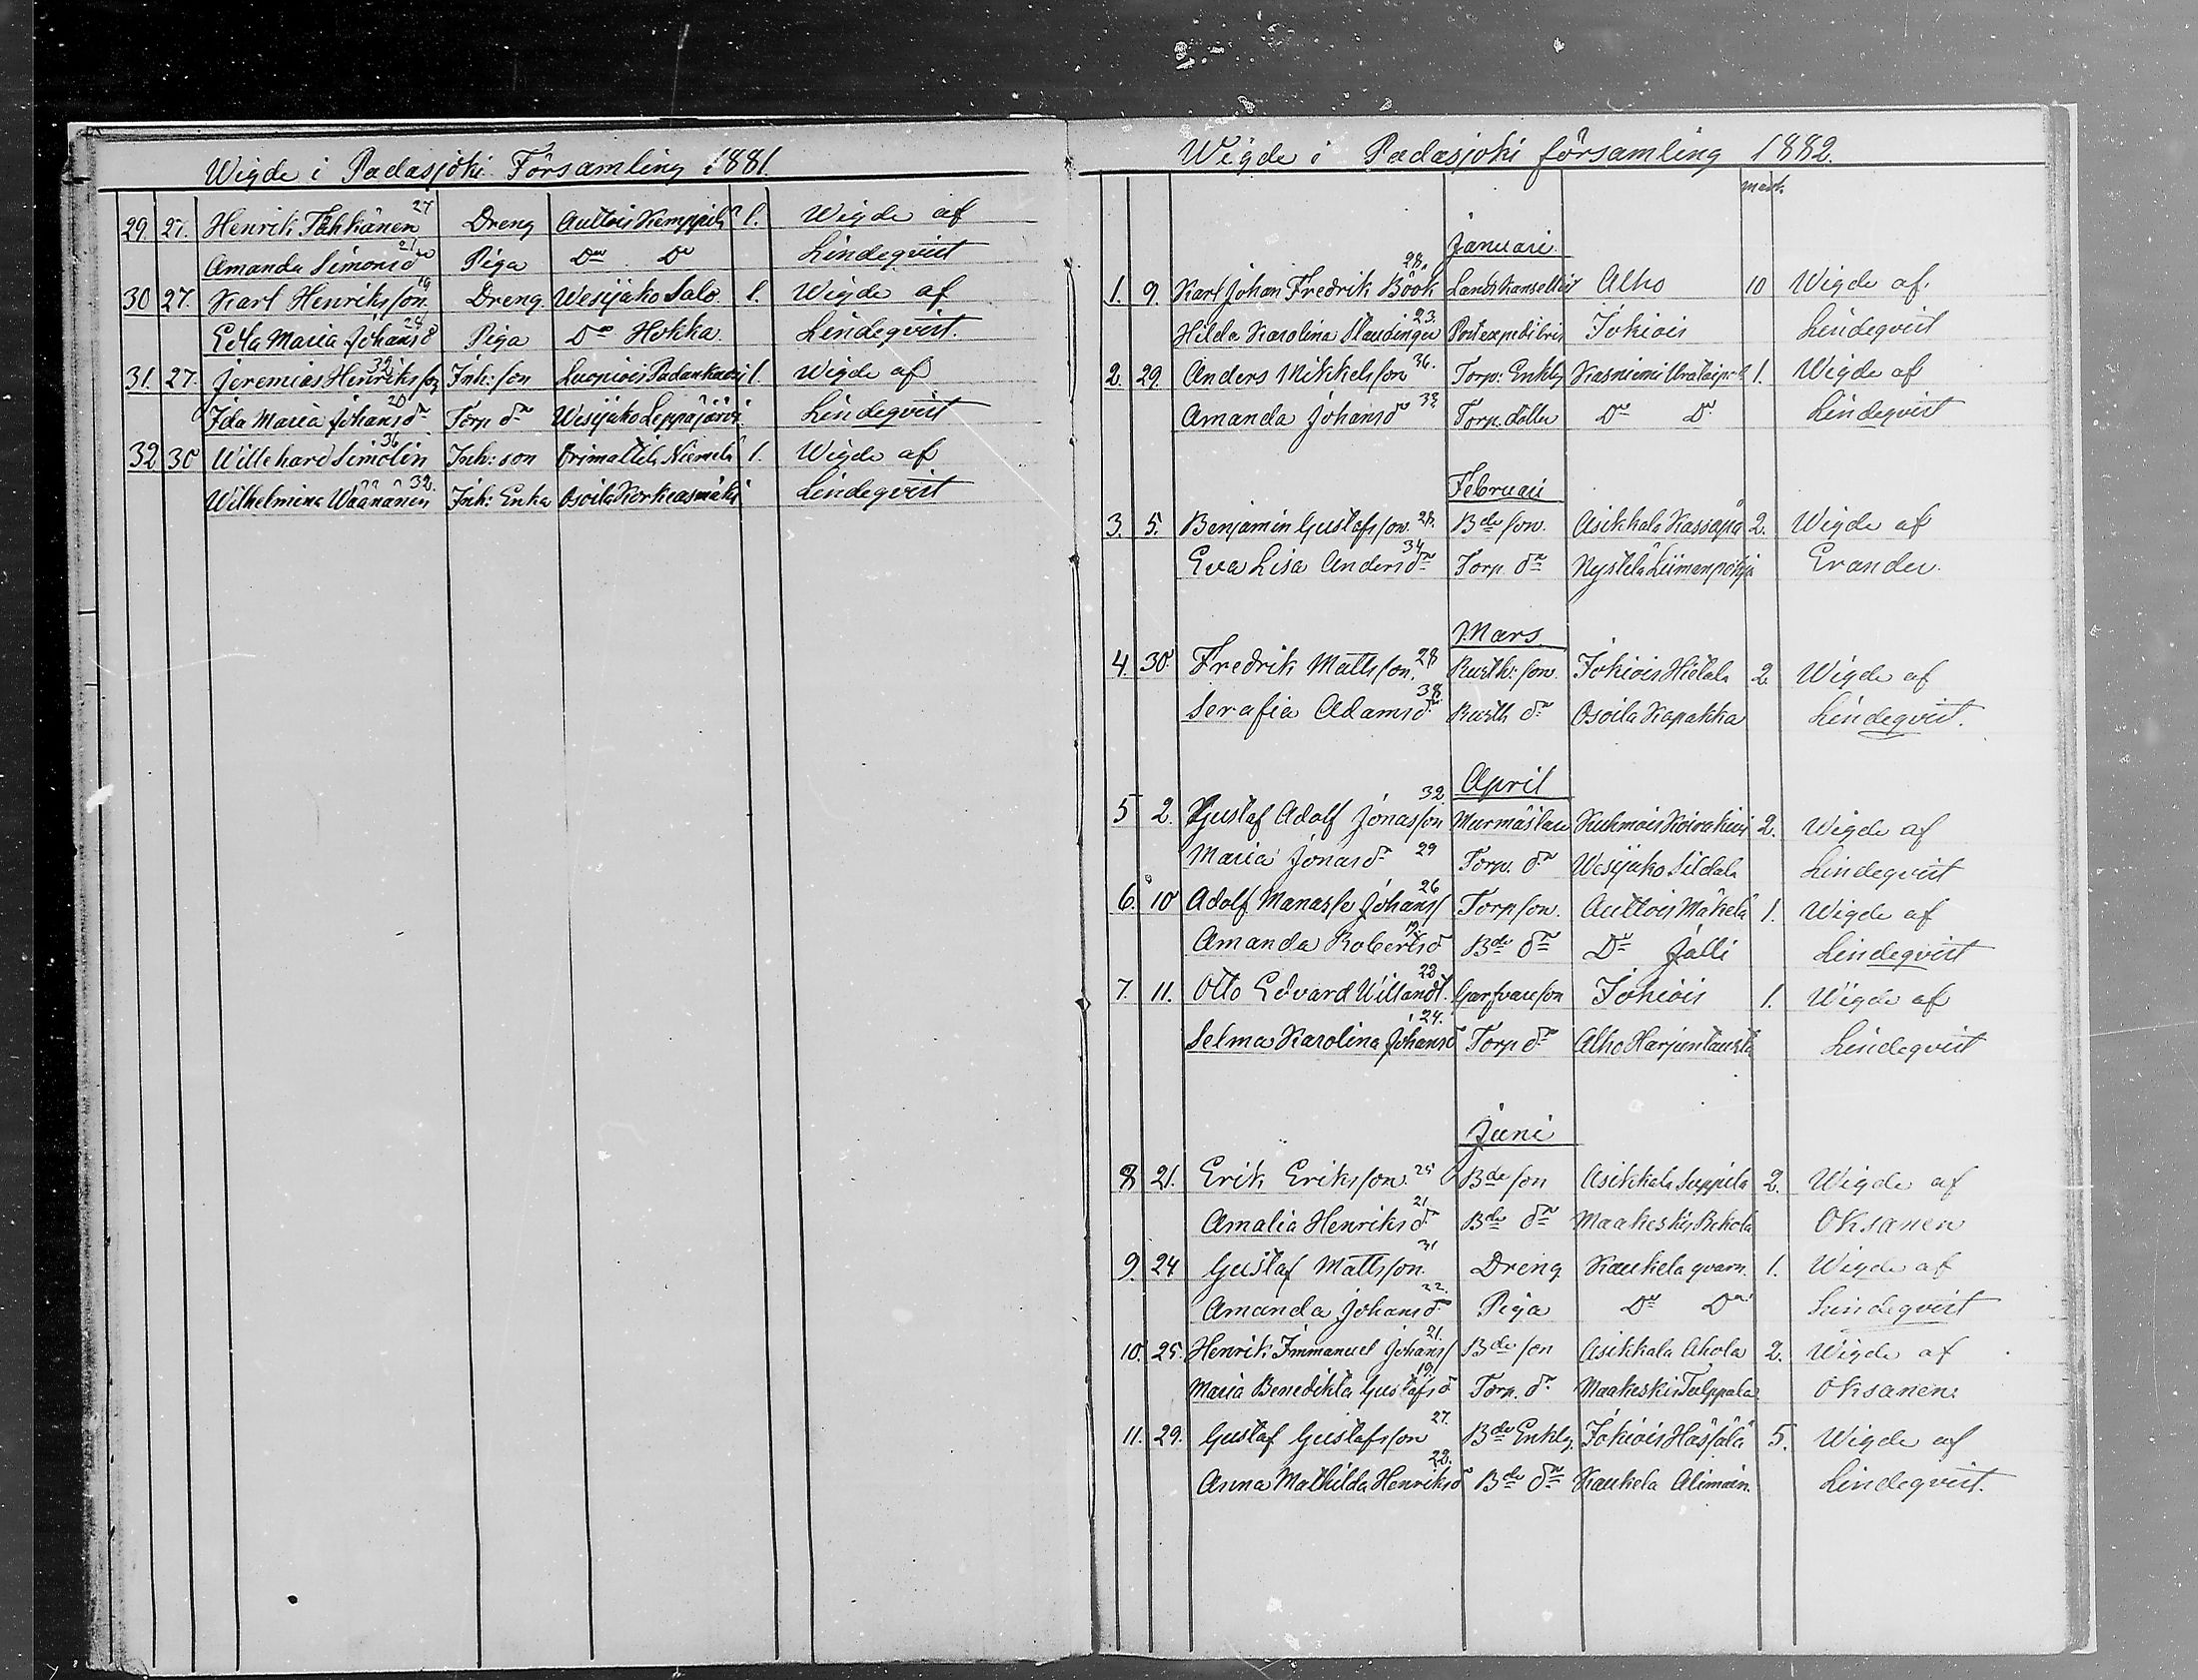 Wigde i Padasjoki Församling 1881.
29. 27. Henrik Tähkänen 27 Dreng Auttois Kemppilä 1. Wigde af
Amanda Simonsdr 21 Piga Do Do Lindeqvist
30 27. Karl Henriksson 19 Dreng. Wesijako Salo 1. Wigde af
Edla Maria Johansd 28 Piga Do Hokka. Lindeqvist.
31. 27. Jeremias Henriksson 32 Inh: son Luopiois Padankoski 1. Wigde af
Ida Maria Johansdr 20 Torp dr Wesijako Leppäjärvi Lindeqvist
32 30 Willehard Simolin 36 Inh: son Orimattila Niemelä 1. Wigde af
Wilhelmina Wäänänen 32. Inh: Enka Osoila Korkeasmäki Lindeqvist
Wigde i Padasjoki församling 1882.
mark
Januari
1. 9. Karl Johan Fredrik Böök 28. Landskansellist Alho 10 Wigde af.
Hilda Karolina Staudinger 23. Postexpeditris Jokiois Lindeqvist
2. 29. Anders Mikkelsson 36. Torp: Enkl Kasniemi 1. Wigde af
Amanda Johansdr 33 Torp. dotter Do Do Lindeqvist
Februari
3. 5. Benjamin Gustafsson. 28. Bde son. Asikkala Kassapä 2. Wigde af
Eva Lisa Andersdr 34 Torp. dr Nystölä Liimenpohja Erander.
Mars
4. 30. Fredrik Mattsson. 28 Rusth: son. Jokiois Hietala 2 Wigde af
Serafia Adamsdr 38 Rusth dr Osoila Kapakka Lindeqvist.
April
5 2. Gustaf Adolf Jonasson 32 Murmästare Kuhmois Koirakivi 2. Wigde af
Maria Jonasdr 29 Torp. dr Wesijako Sildala Lindeqvist
6. 10 Adolf Manasse Johanss 26 Torp son. Auttois Mäkelä 1. Wigde af
Amanda Robertsd 19 Bde dr Do Jälli Lindeqvist
7. 11. Otto Edvard Willandt. 28 Garfvareson Jokiois 1. Wigde af
Selma Karolina Johansd 24. Torp dr Alho Harjuntausta Lindeqvist
Juni
8 21. Erik Eriksson. 25 Bde son Asikkala Seppilä 2. Wigde af
Amalia Henriksdr 21 Bde dr Maakeski Rekola Oksanen
9. 24 Gustaf Mattsson. 31 Dreng Kaukela qvarn. 1. Wigde af
Amanda Johansdr 22. Piga Do Do Lindeqvist
10. 25. Henrik Immanuel Johanss 21. Bde son Asikkala Ahola 2. Wigde af
Maria Benedikta Gustafsd 19. Torp. dr Maakeski Tulppala Oksanen.
11. 29. Gustaf Gustafsson 27. Bde Enkl Jokiois Hässälä 5. Wigde af
Anna Mathilda Henriksd 22. Bde dr Kaukela Alimäin. Lindeqvist.